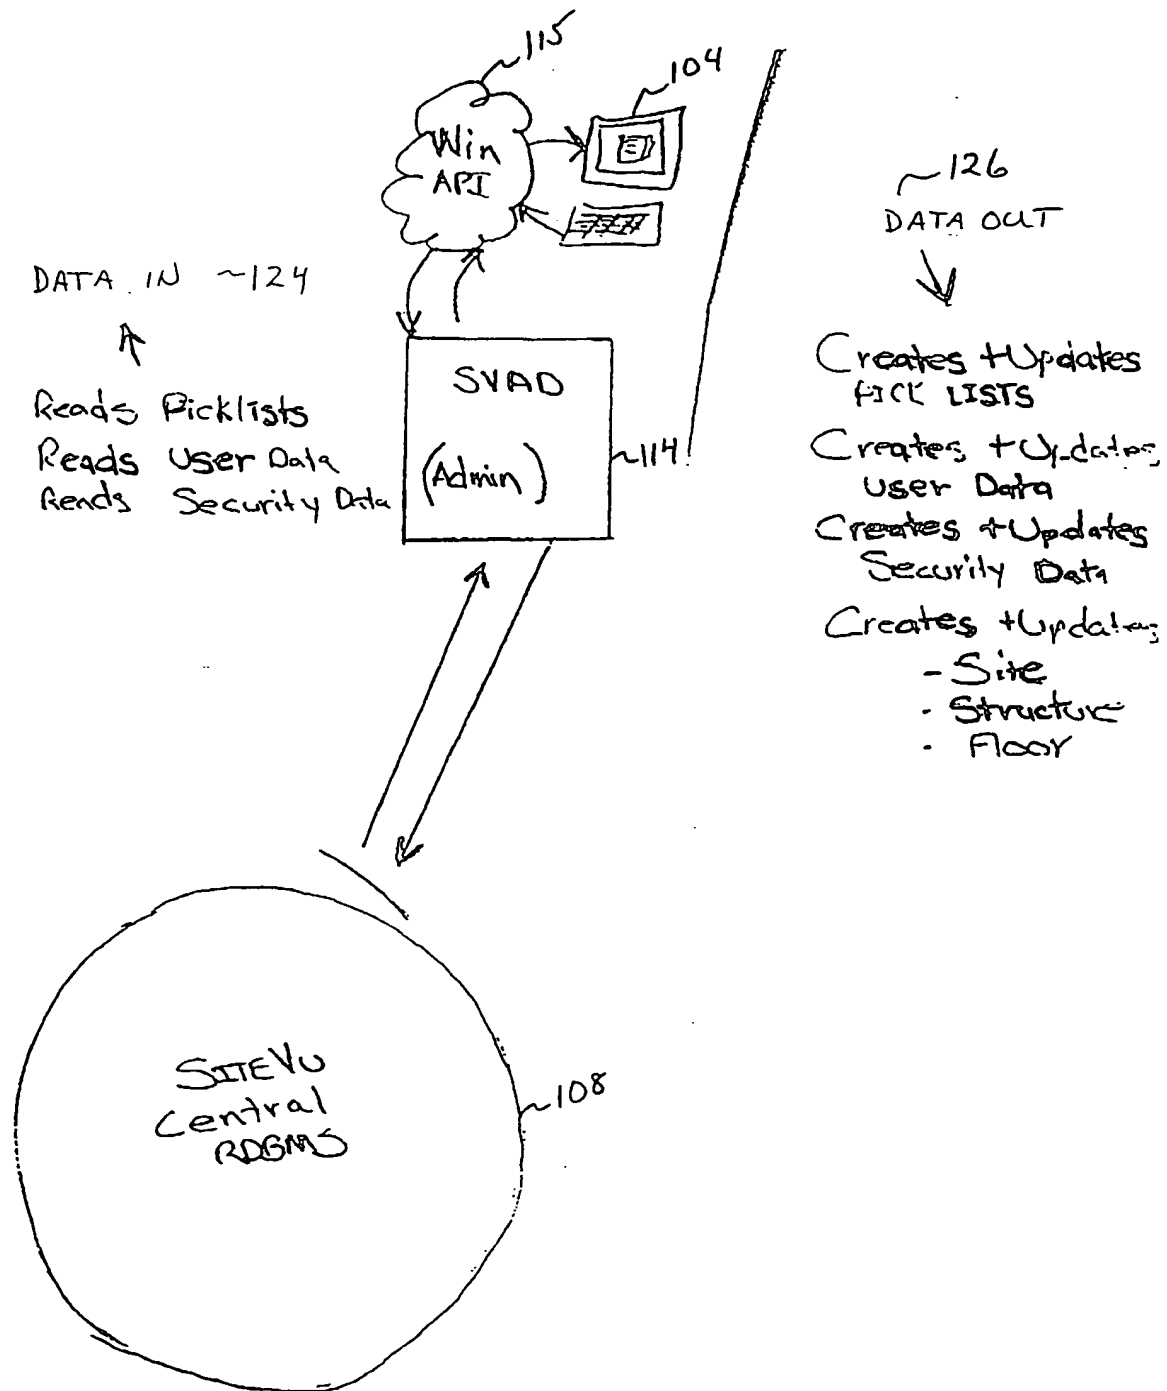 115
104
Win
API
126
DATA OUT
DATA IN 124
Reads Picklists
Reads User Data
Reads Security Data
SVAD
(Admin)
114
Creates + Updates
PICK LISTS
Creates + Updates
User Data
Creates + Updates
Security Data
Creates + Updates
- Site
- Structure
- Floor
SITEVU
Central
RDBMS
108